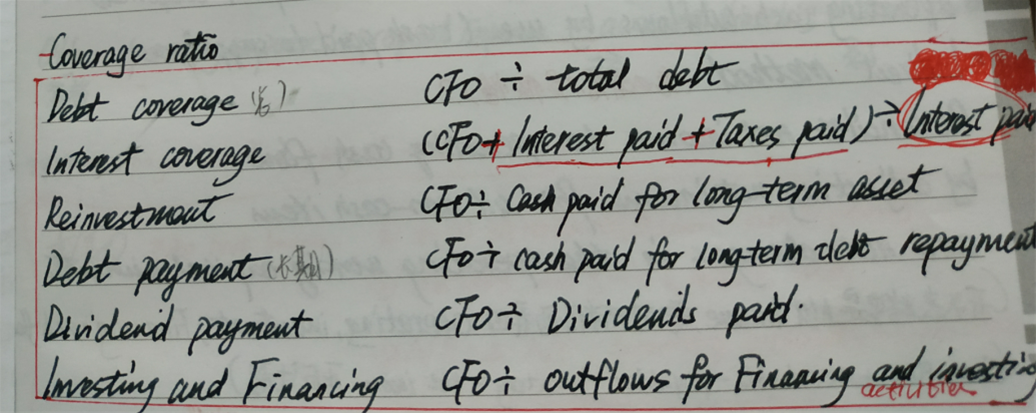 Coverage ratio
Debt coverage (总) CFO ÷ total debt
Interest coverage (CFO + Interest paid + Taxes paid) ÷ Interest paid
Reinvestment CFO ÷ Cash paid for long-term asset
Debt payment (长期) CFO ÷ cash paid for long-term debt repayment
Dividend payment CFO ÷ Dividends paid.
Investing and Financing CFO ÷ outflows for Financing and investin
activities